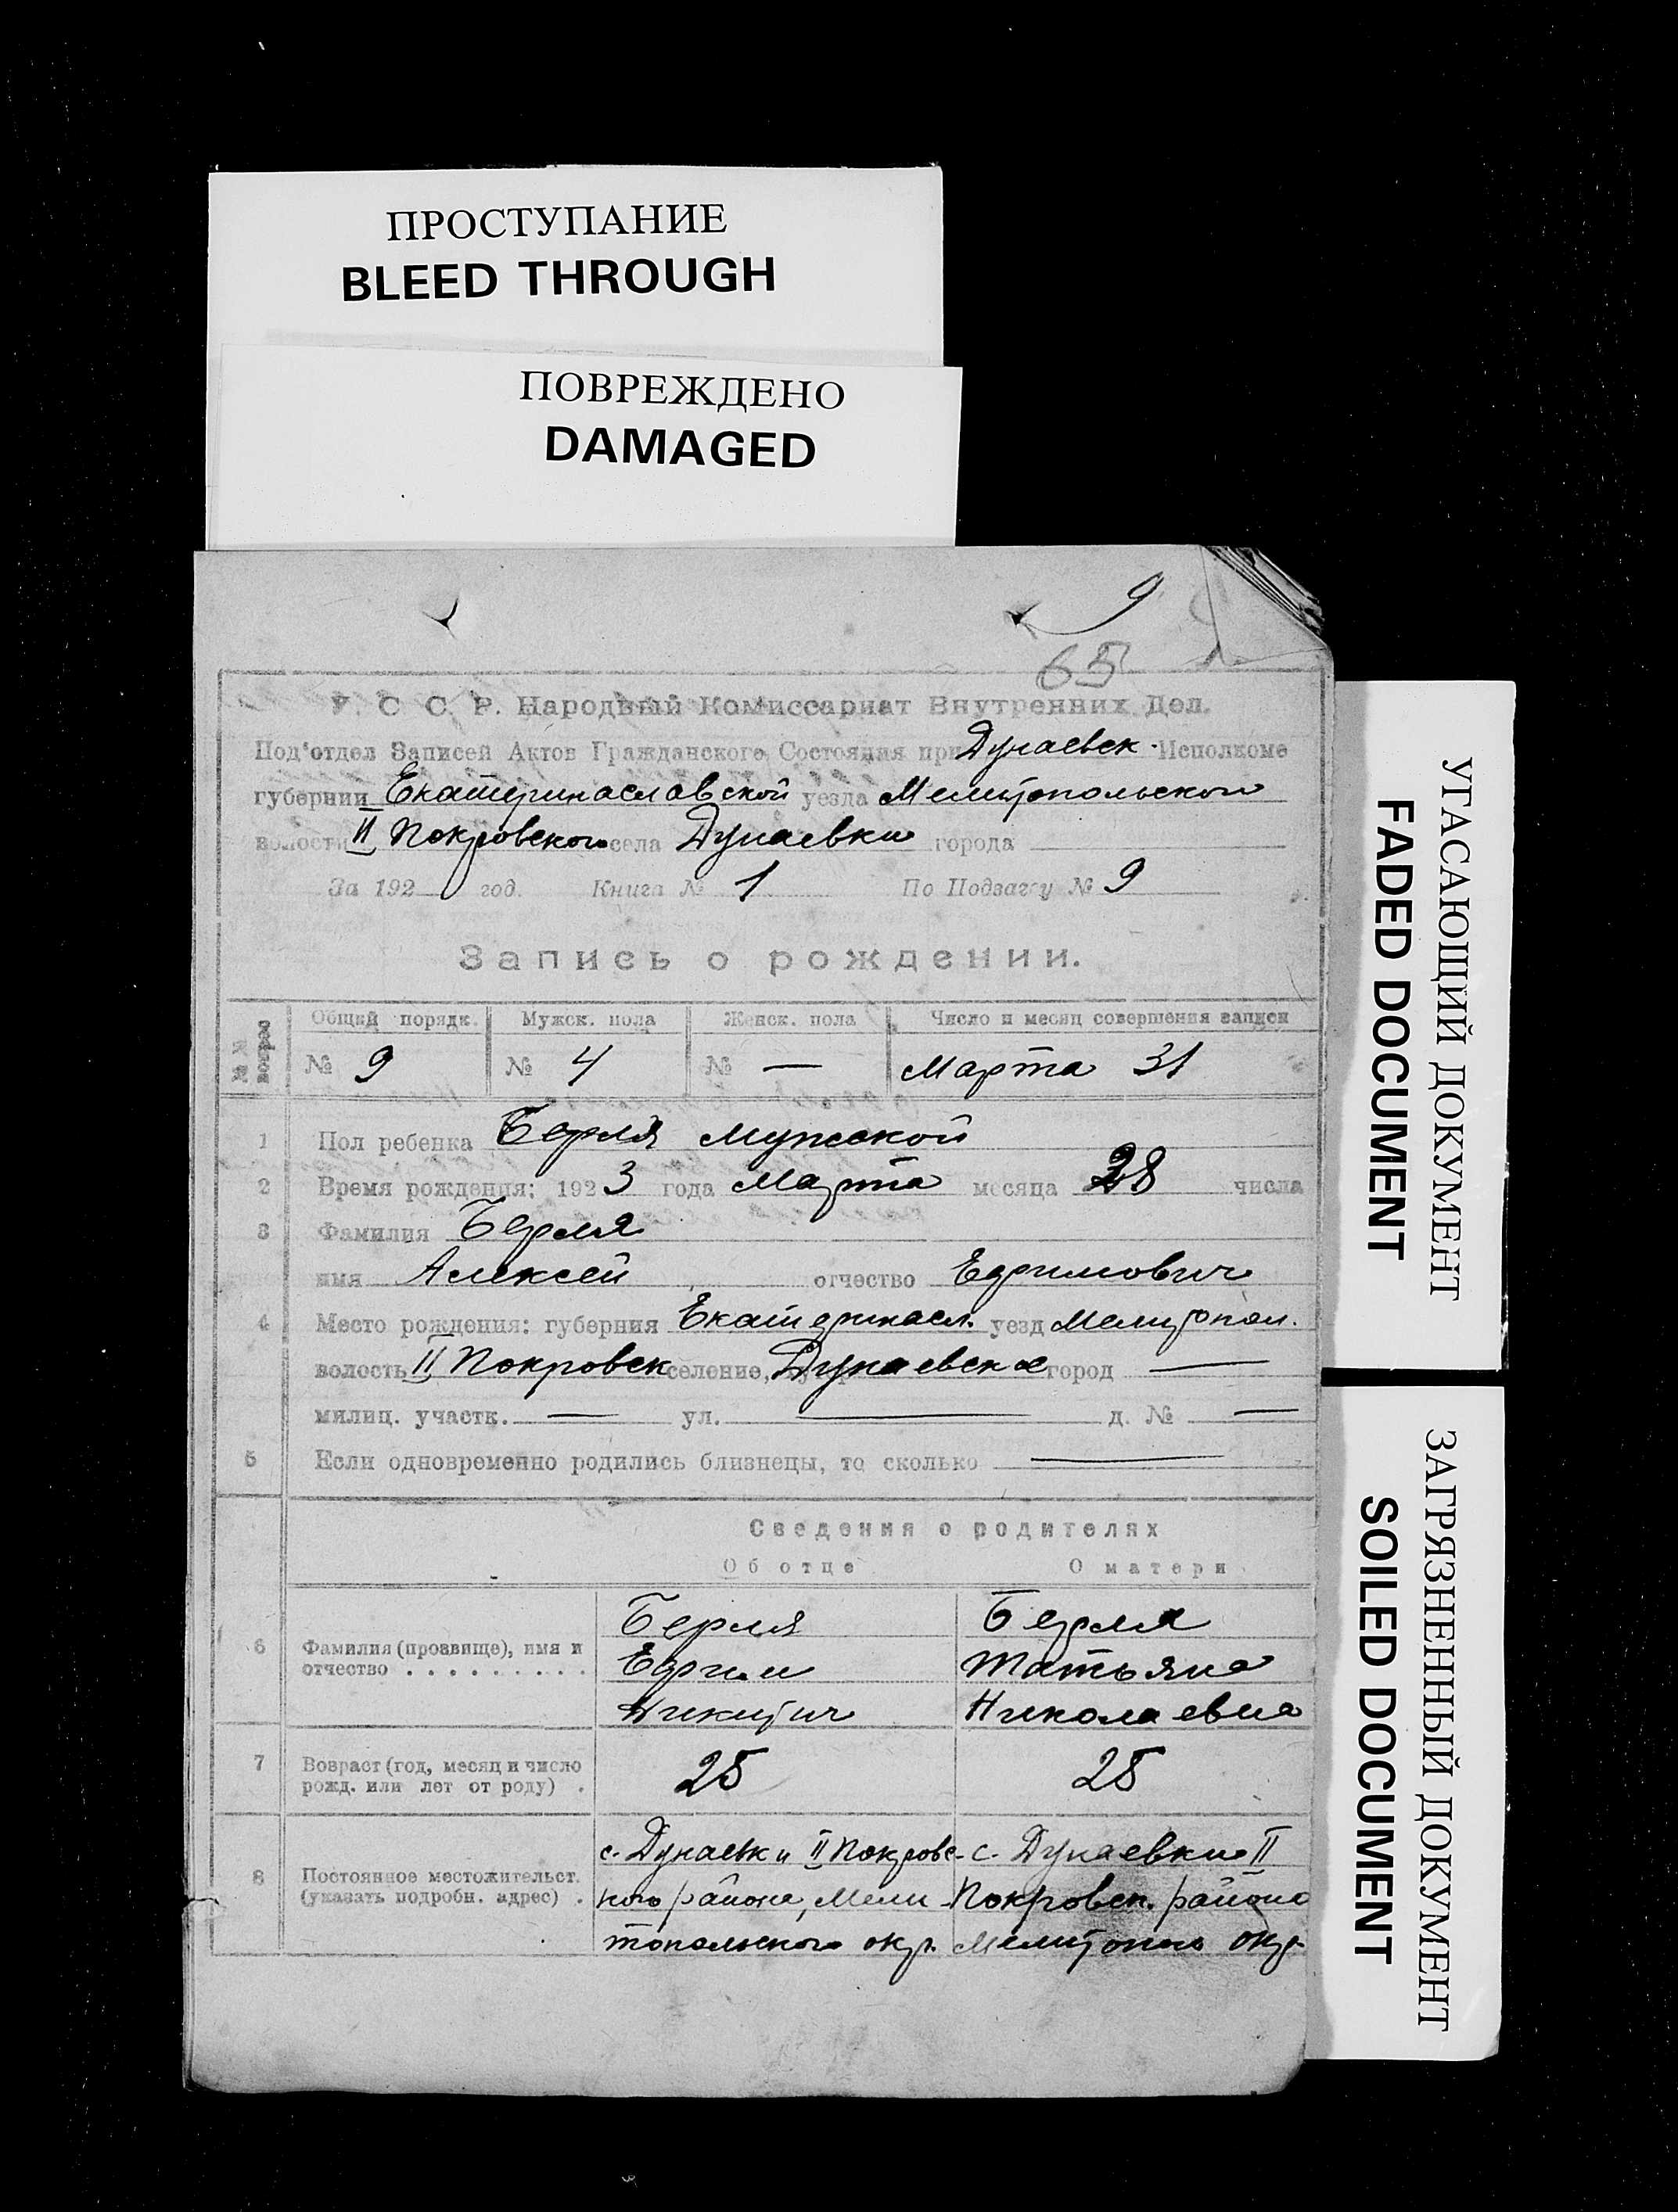 ПРОСТУПАНИЕ
BLEED THROUGH
ПОВРЕЖДЕНО
DAMAGED
9
65
У. С. С. Р. Народный Комиссариат Внутренних Дел.
Под'отдел Записей Актов Гражданского Состояния при Дунаевск. Исполкоме
губернии Екатеринославской уезда Мелитопольского
волости II Покровского села Дунаевки города
За 192 год. Книга № 1 По Подзагсу № 9
Запись о рождении.
Общий порядк. Мужск. пола Женск. пола Число и месяц совершения записи
№ 9 № 4 № — Марта 31
1 Пол ребенка Берля мужской
2 Время рождения: 1923 года Марта месяца 28 числа
3 Фамилия Берля
имя Алексей отчество Ефимович
4 Место рождения: губерния Екатеринасл. уезд Мелитопол.
волость II Покровск селение, Дунаевское город —
милиц. участк. — ул. — д. № —
5 Если одновременно родились близнецы, то сколько —
Сведения о родителях
Об отце О матери
6 Фамилия (прозвище), имя и отчество
Берля
Ефим
Никитич
Берля
Татьяна
Николаевна
7 Возраст (год, месяц и число
рожд. или лет от роду) .
25 25
8 Постоянное местожительст.
(указать подробн. адрес) .
с. Дунаевки II Покровс-
кого района, Мели-
топольского окр.
с. Дунаевки II
Покровск. района
Мелитополь окр.
УГАСАЮЩИЙ ДОКУМЕНТ
FADED DOCUMENT
ЗАГРЯЗНЕННЫЙ ДОКУМЕНТ
SOILED DOCUMENT